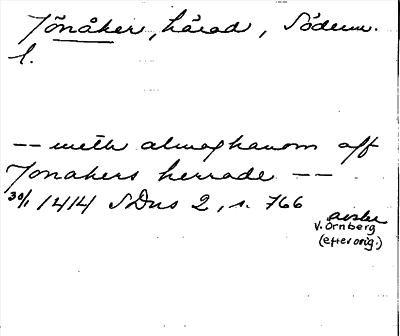 Jönåker, härad, Söderm.
l.
-- meth almoghanom aff
Jonakers herrade --
30/1 1414 SDns 2, s. 766
avskr
V. Örnberg
(efter orig.)